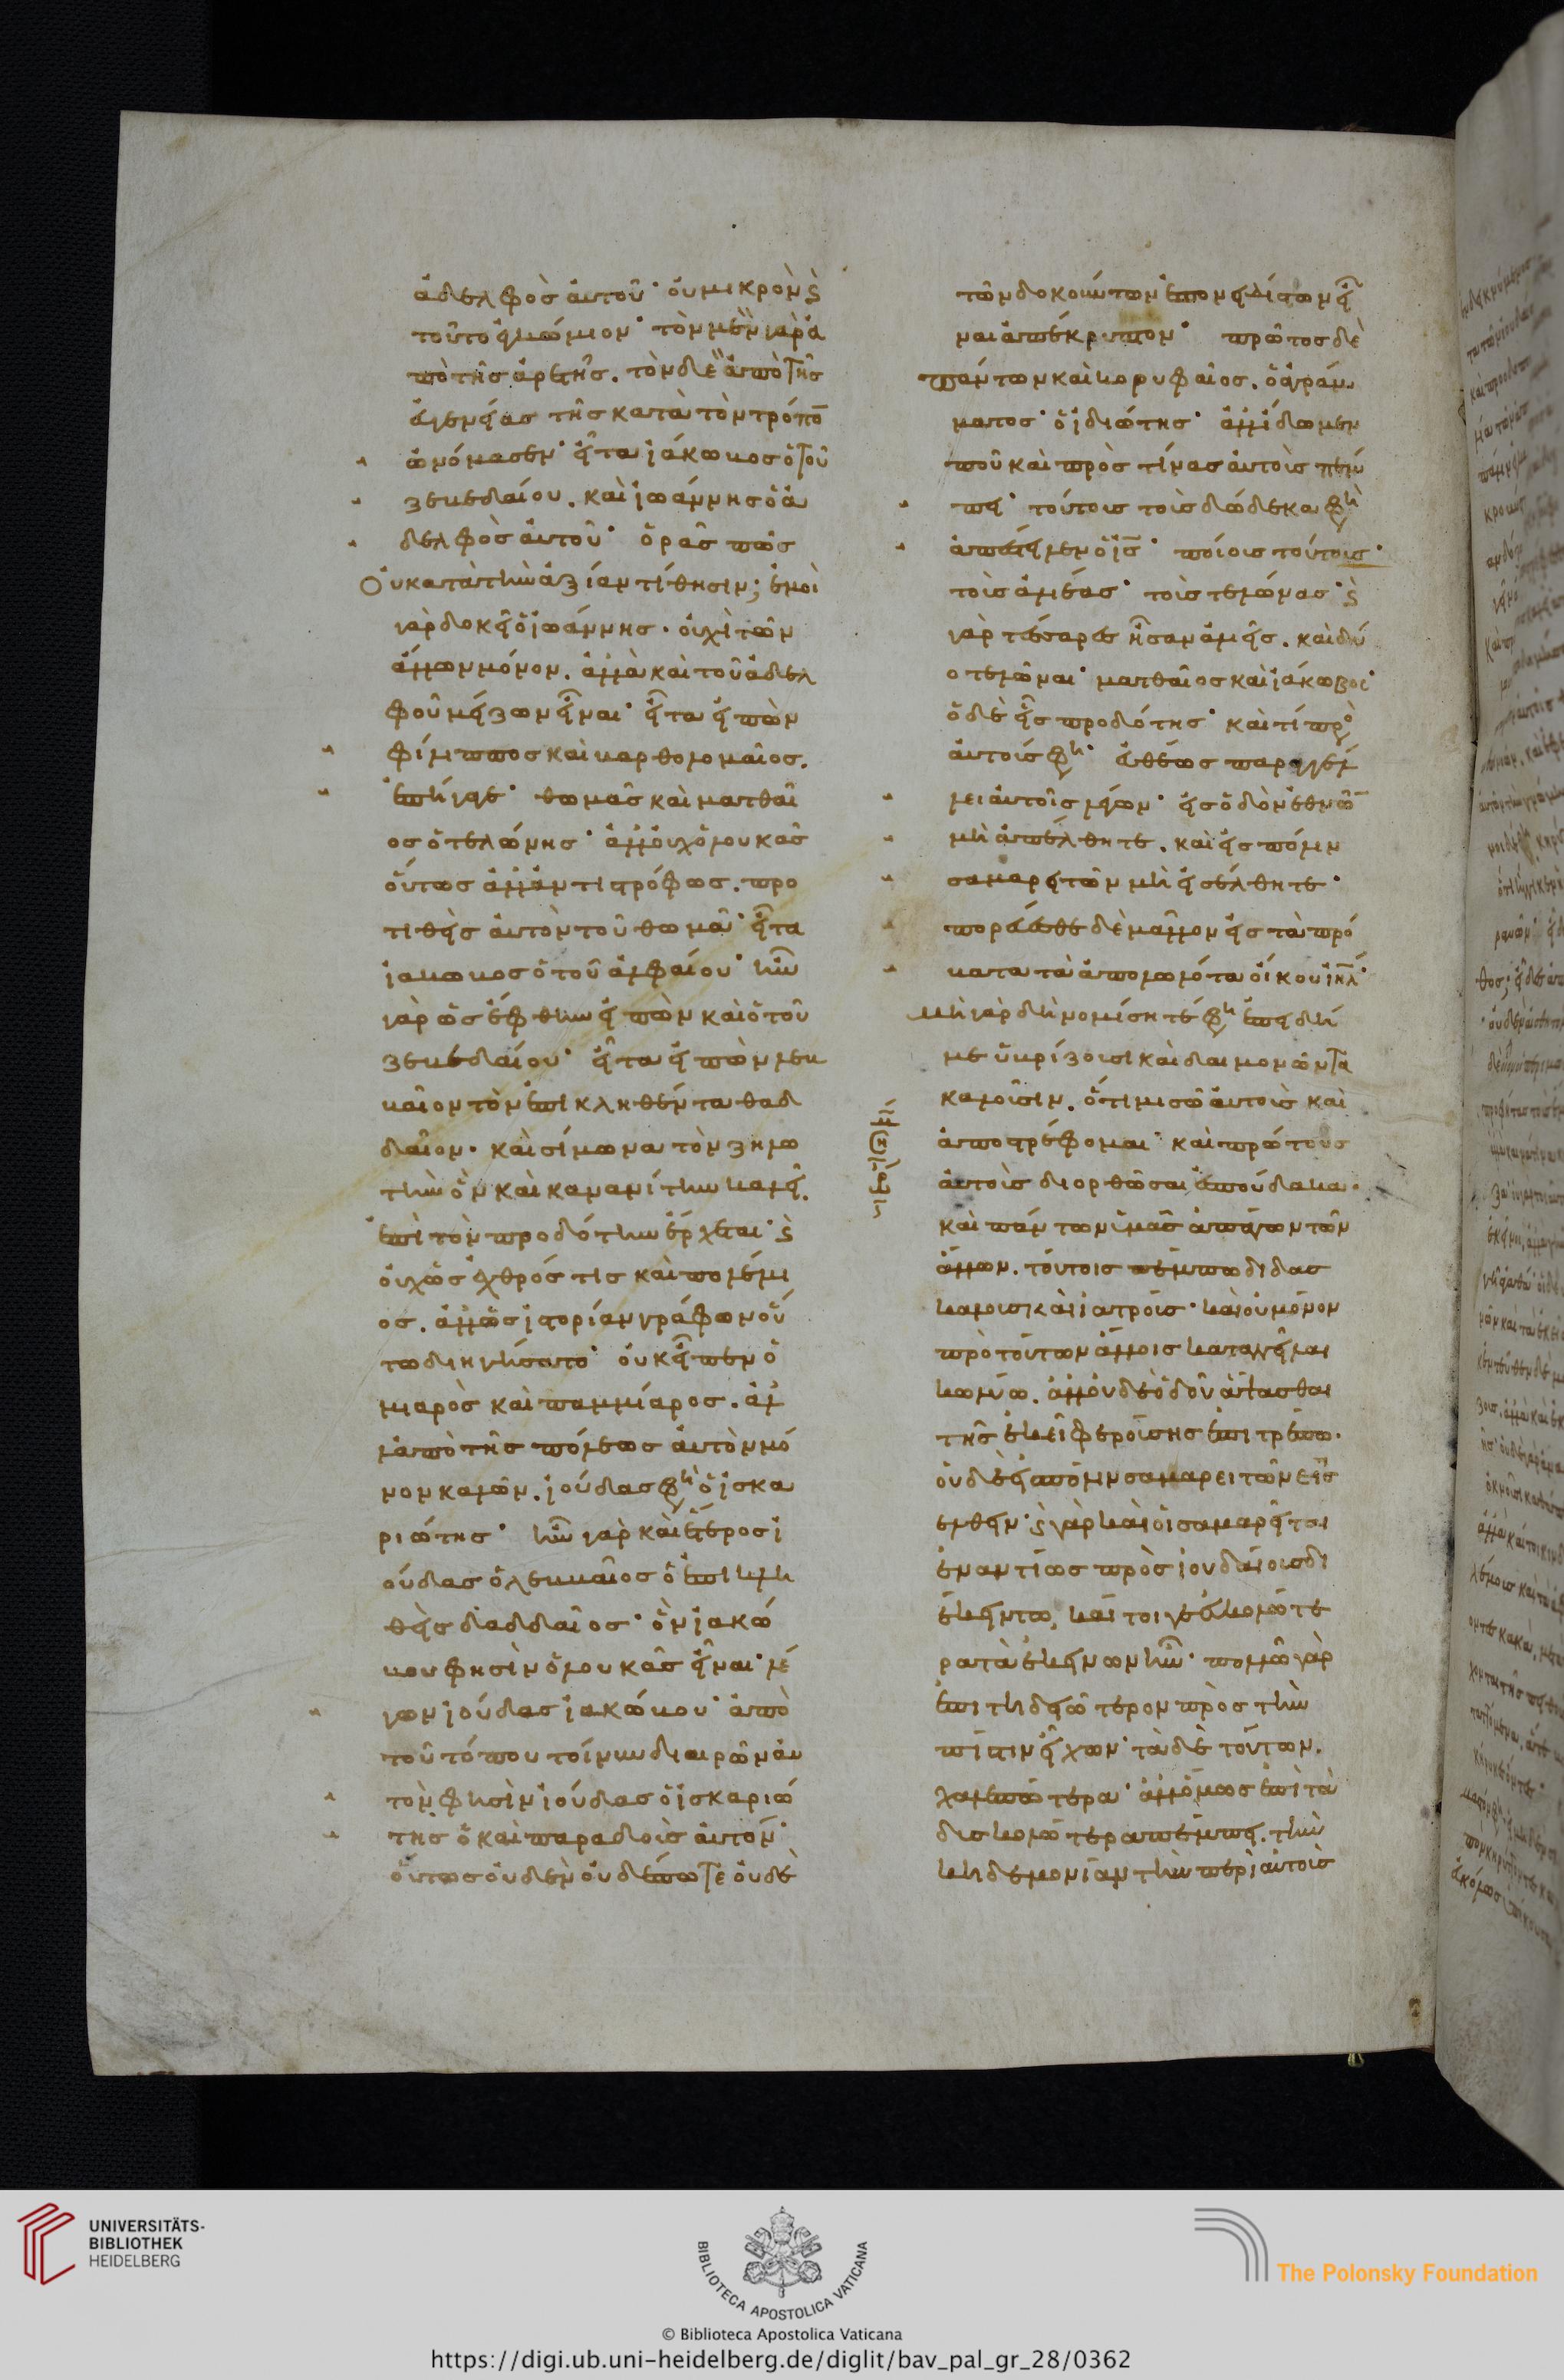 ἀδελφὸς αὐτοῦ· οὐ μικρὸν δὲ
τοῦτο ἐγκώμιον· τὸν μὲν γὰρ ἀ
πὸ τῆς ἀρετῆς. τὸν δὲ ἀπὸ τῆς
εὐγενείας τῆς κατὰ τὸν τρόπο
ὠνόμασεν· εἶτα ἰάκωβος ὁ τοῦ
ζεβεδαίου. καὶ ἰωάννης ὁ ἀ
δελφὸς αὐτοῦ· ὁρᾶς πῶς
οὐ κατὰ τὴν ἀξίαν τίθησιν; ἐμοὶ
γὰρ δοκεῖ ὁ ἰωάννης. οὐχὶ τῶν
ἄλλων μόνον. ἀλλὰ καὶ τοῦ ἀδελ
φοῦ μείζων εἶναι· εἶτα εἰπὼν
φίλιππος καὶ βαρθολομαῖος.
ἐπήγαγε· θωμᾶς καὶ ματθαῖ
ος ὁ τελώνης· ἀλλ' οὐχ ὁ λουκᾶς
οὕτως ἀλλ' ἀντιστρόφως. προ
τιθεὶς αὐτὸν τοῦ θωμᾶ· εἶτα
ἰάκωβος ὁ τοῦ ἀλφαίου· ἦν
γὰρ ὡς ἔφθην εἰπὼν καὶ ὁ τοῦ
ζεβεδαίου· εἶτα εἰπὼν λεβ
βαῖον τὸν ἐπικληθέντα θαδ
δαῖον. καὶ σίμωνα τὸν ζηλω
τὴν ὃν καὶ κανανίτην καλεῖ.
ἐπὶ τὸν προδότην ἔρχεται· 
οὐχ ὡς ἐχθρός τις καὶ πολέμι
ος. ἀλλ' ὡς ἱστορίαν γράφων οὕ
τω διηγήσατο· οὐκ εἶπεν ὁ
μιαρὸς καὶ παμμίαρος. ἀλ
λ' ἀπὸ τῆς πόλεως αὐτὸν μό
νον καλῶν. ἰούδας φη ὁ ἰσκα
ριώτης· ἦν γὰρ καὶ ἕτερος ἰ
ούδας ὁ λεββαῖος ὁ ἐπικλη
θεὶς θαδδαῖος· ὃν ἰακώ
βου φησὶν ὁ λουκᾶς εἶναι· λέ
γων ἰούδας ἰακώβου· ἀπὸ
τοῦ τόπου τοίνυν διαιρῶν αὐ
τὸν φησὶν ἰούδας ὁ ἰσκαριώ
της ὁ καὶ παραδοὺς αὐτόν·
οὕτως οὐδὲν οὐδέποτε οὐδὲ
τῶν δοκούντων ἐπονειδίστων εἶ
ναι ἀπέκρυπτον· πρῶτος δὲ
πάντων καὶ κορυφαῖος. ὁ ἀγράμ
ματος· ὁ ἰδιώτης· ἀλλ' ἴδωμεν
ποῦ καὶ πρὸς τίνας αὐτοὺς πέμ
πει· τούτους τοὺς δώδεκα φη
ἀπέστειλεν ὁ ις· ποίους τούτους·
τοὺς ἁλιέας· τοὺς τελώνας·
γὰρ τέσσαρες ἦσαν ἁλιεῖς. καὶ δύ
ο τελῶναι· ματθαῖος καὶ ἰάκωβος·
ὁ δὲ εἷς προδότης· καὶ τί πρὸ
αὐτούς φη· εὐθέως παραγγέλ
λει αὐτοῖς λέγων· εἰς ὁδὸν ἐθνῶ
μὴ ἀπέλθητε. καὶ εἰς πόλιν
σαμαρειτῶν μὴ εἰσέλθητε·
πορεύεσθε δὲ μᾶλλον εἰς τὰ πρό
βατα τὰ ἀπολωλότα οἴκου ιηλ·
μὴ γὰρ δὴ νομίσητέ φη ἐπειδή
με ὑβρίζουσι καὶ δαιμονῶντα
καλοῦσιν. ὅτι μισῶ αὐτοὺς καὶ
ἀποστρέφομαι· καὶ πρώτους
αὐτοὺς διορθῶσαι ἐσπούδακα.
καὶ πάντων ὑμᾶς ἀπάγων τῶν
ἄλλων. τούτοις πέμπω διδας
κάλους καὶ ἰατρούς. καὶ οὐ μόνον
πρὸ τούτων ἄλλοις καταγγεῖλαι
κωλύω. ἀλλ' οὐδὲ ὁδοῦ ἅπτασθαι
τῆς ἐκεῖ φερούσης ἐπιτρέπω.
οὐδὲ εἰς πόλιν σαμαρειτῶν εἰς
ελθεῖν· γὰρ καὶ οἱ σαμαρεῖται
ἐναντίως πρὸς ἰουδαίους δι
έκειντο, καί τοι γε εὐκολώτε
ρα τὰ ἐκείνων ἦν· πολλῷ γὰρ
ἐπιτηδειότερον πρὸς τὴν
πίστιν εἶχον· τὰ δὲ τούτων.
χαλεπώτερα· ἀλλ' ὅμως ἐπὶ τὰ
δυσκολώτερα πέμπει. τὴν
κηδεμονίαν τὴν περὶ αὐτοὺς
UNIVERSITÄTS-
BIBLIOTHEK
HEIDELBERG
BIBLIOTECA APOSTOLICA VATICANA
The Polonsky Foundation
© Biblioteca Apostolica Vaticana
https://digi.ub.uni-heidelberg.de/diglit/bav_pal_gr_28/0362